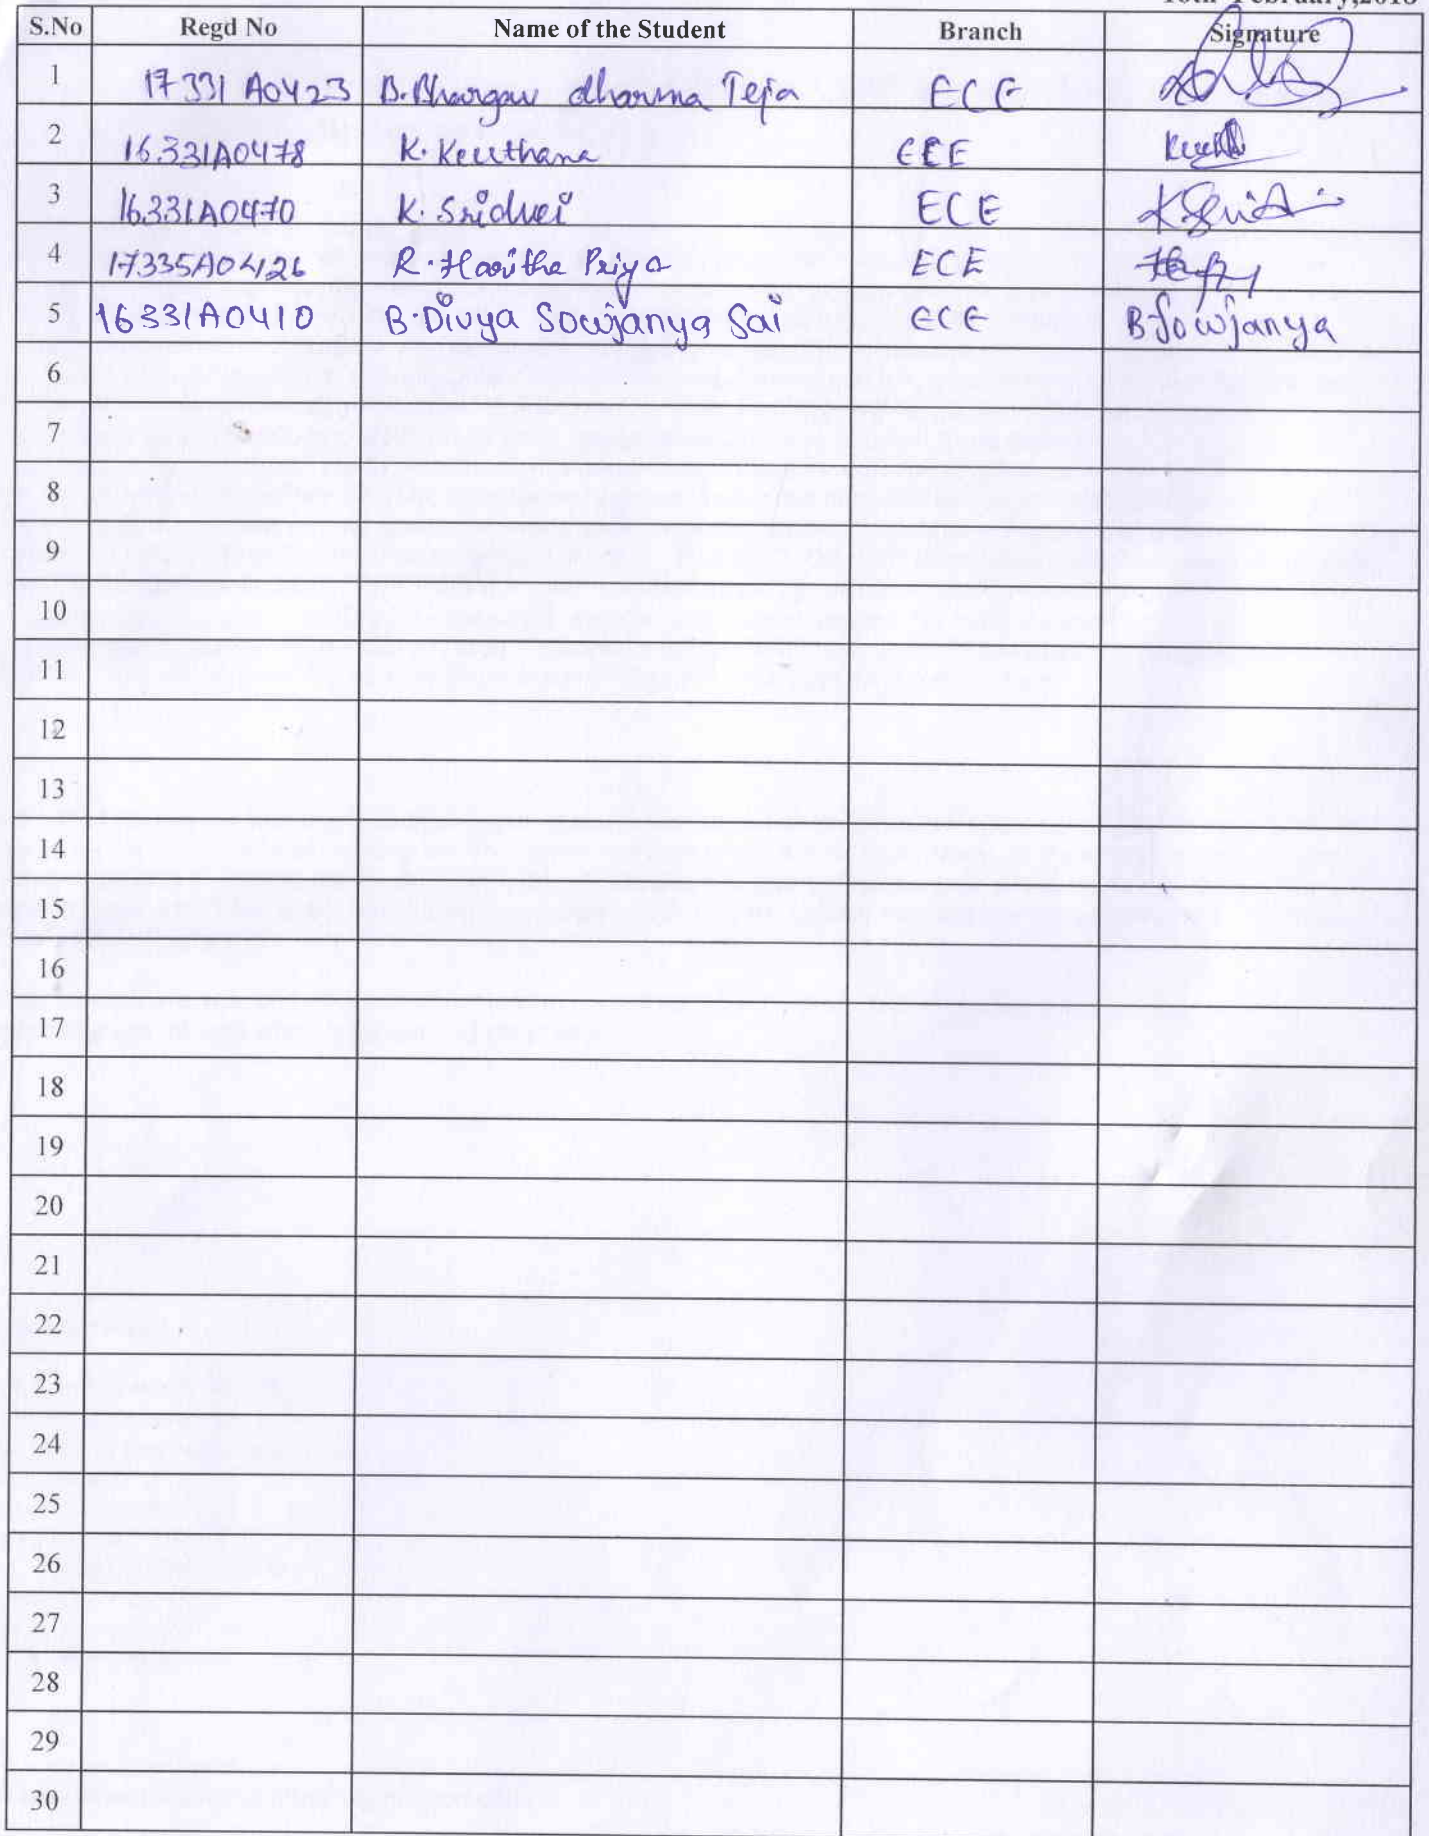 S.No Regd No Name of the Student Branch Signature
1 17331A0423 B.Bhargav dharma Teja ECE
2 16331A0478 K.Keerthana ECE
3 16331A0470 K. Sridevi ECE
4 17335A0426 R.Haritha Priya ECE
5 16331A0410 B.Divya Sowjanya Sai ECE B Sowjanya
6
7
8
9
10
11
12
13
14
15
16
17
18
19
20
21
22
23
24
25
26
27
28
29
30